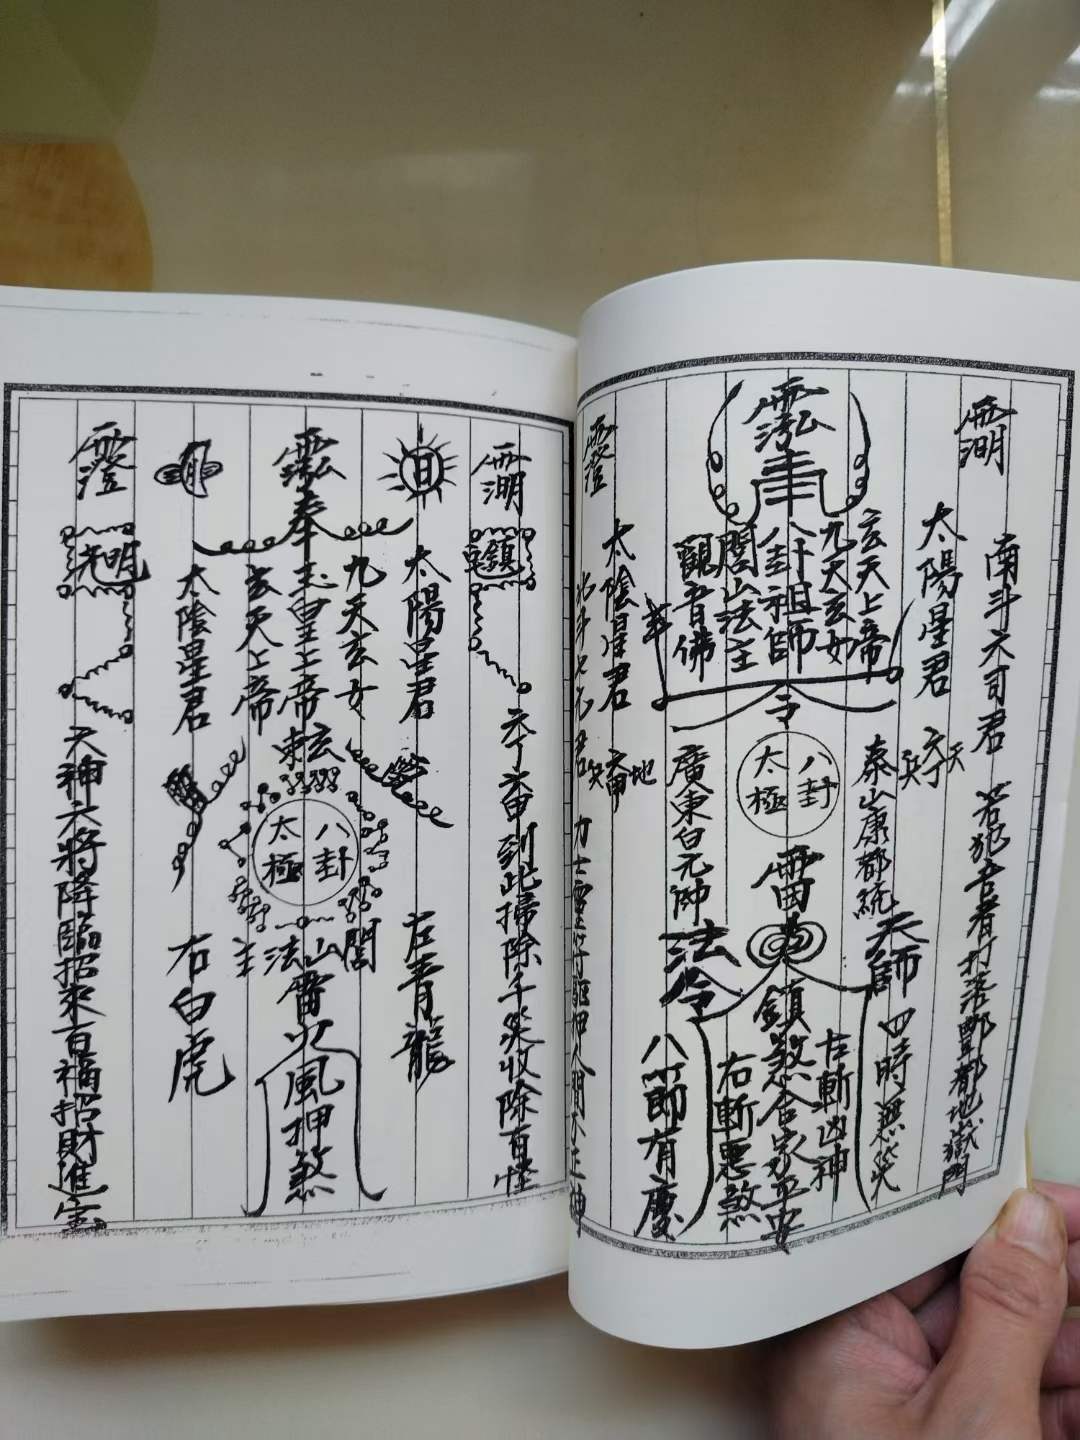 南斗六司君 若犯吾者打落酆都地獄門
太陽星君
天
六丁
兵
四時無災
玄天上帝
九天玄女
八卦祖師
閭山法主
觀音佛
奉
令
八封
太極
泰山康都統
天師
左斬凶神
雷
鎮煞合家平安
廣東白元帥
法令
右斬惡煞
八節有慶
太陰星君
地
六甲
兵
鎮
六丁六甲到此掃除千災收除百怪
日
太陽星君
左青龍
九天玄女
奉玉皇上帝敕
玄天上帝
八卦
太極
閭山法主
雷火風押煞
月
太陰星君
右白虎
光明
天神六將降臨招來百福招財進宝